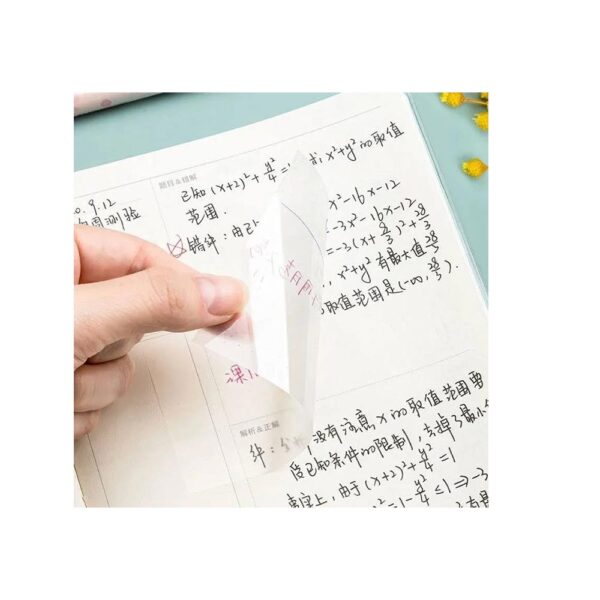 题目&错解
0.9.12
已知 (x+2)²+y²/4=1, 求 x²+y² 的取值
范围.
错解: 由已
x²-16x-12
=-3x²-16x-12
=-3(x+8/3)²+28/3
, x²+y² 有最大值 28/3
取值范围是(-∞, 28/3).
课
解析&正解
解:
没有注意 x 的取值范围要
受已知条件的限制, 丢掉了最小
事实上, 由于 (x+2)²+y²/4=1
²=1-y²/4≤1⇒-3